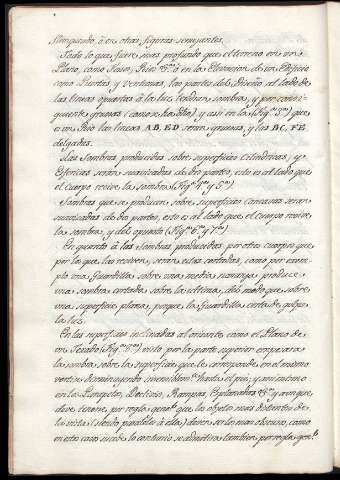 Rompiendo ó en otras figuras semejantes.
Todo lo que fuere mas profundo que el terreno en un
Plano, como Fosos, Rios &ª ó en la Elevacion de un Edificio
como Puertas y Ventanas, las partes del Diseño, al lado de
las lineas opuestas á la luz, tendrán sombra, y por consi-
guiente gruesas (como se ha dho) y assi en la (Figª 3ª) que
es un Rio las lineas AB, ED serán gruesas, y las BC, FE
delgadas.
Las Sombras producidas sobre superficies cilindricas, y
Esfericas serán suavizadas de dos partes, esto es al lado que
el cuerpo recive la sombra (Figª 4ª y 5ª)
Sombras que se producen sobre superficies concavas serán
suavizadas de dos partes, esto es al lado que el cuerpo recive
la sombra, y del opuesto (Figª 6ª y 7ª)
En quanto á las Sombras producidas por otros cuerpos que
por los que las reciven, serán estas cortadas, como por exem-
plo una Guardilla sobre una media naranja produce
una sombra cortada sobre la ultima, del modo que sobre
una superficie plana, porque la Guardilla corta de golpe
la luz.
En las superficies inclinadas al orizonte como el Plano de
un Texado (Figª 8ª) visto por la parte superior empezará
la sombra sobre la superficie que le corresponde en el mismo
vertice disminuyendo insensiblemte hasta el pie; y asi mismo
en las Banquetas, Declivios, Rampas, Esplanadas &ª y aunque
deve tenerse por regla genl que los objetos mas distantes de
la vista (siendo paralelos á ella) deven ser los mas obscuros, como
en este caso sucede lo contrario se admitira tambien por regla genl